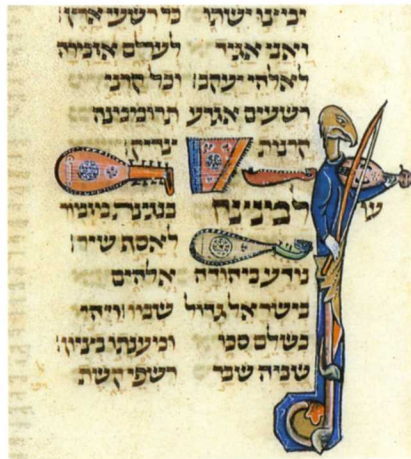 ימצו ישתו כל רשעי ארץ׃
ואני אגיד לעלם אזמרה
לאלהי יעקב׃ וכל קרני
רשעים אגדע תרוממנה
קרנות צדיק׃
עו
למנצח בנגינת מזמור
לאסף שיר׃
נודע ביהודה אלהים
בישראל גדול שמו׃ ויהי
בשלם סכו ומענתו בציון׃
שמה שבר רשפי קשת